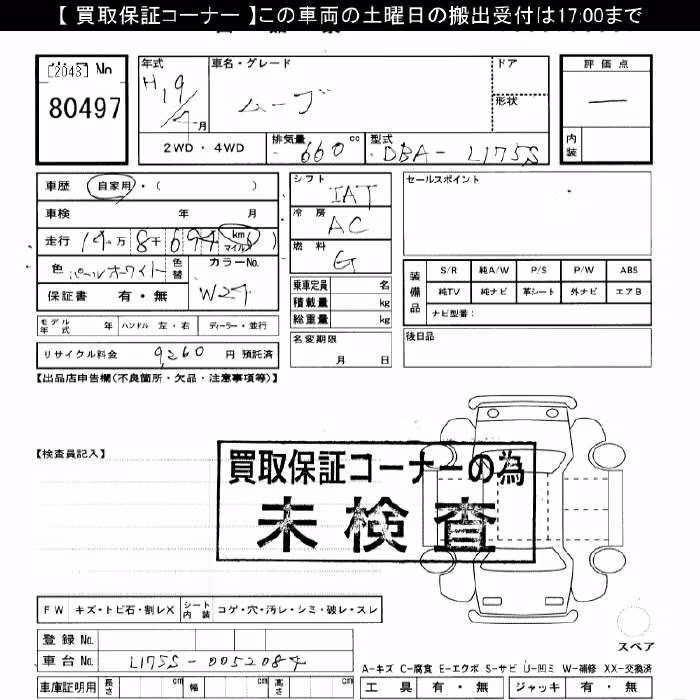 【 買取保証コーナー 】この車両の土曜日の搬出受付は17:00まで
[2043] No
80497
年式 車名・グレード ドア 評価点
H19/4月 ムーブ 形状 —
2WD・4WD 排気量 660 cc 型式 DBA- L175S 内装
車歴 自家用・( ) シフト IAT セールスポイント
車検 年 月 冷房 AC
走行 14万8千694 km マイル ( ) 燃料 G
色 パールホワイト 色替 カラーNo. W24
保証書 有・無
乗車定員 名
積載量 kg
総重量 kg
装備品 S/R 純A/W P/S P/W ABS
純TV 純ナビ 革シート 外ナビ エアB
ナビ型番：
モデル年式 年 ハンドル 左・右 ディーラー・並行
名変期限 月 日
後日品
リサイクル料金 9,260 円 預託済
【出品店申告欄(不良箇所・欠品・注意事項等)】
【検査員記入】
買取保証コーナーの為
未検査
FW キズ・トビ石・割レX シート内装 コゲ・穴・汚レ・シミ・破レ・スレ
スペア
登録 No.
車台 No. L175S-0052084
A-キズ C-腐食 E-エクボ S-サビ U-凹ミ W-補修 XX-交換済
車庫証明用 長さ cm 幅 cm 高さ cm 工具 有・無 ジャッキ 有・無